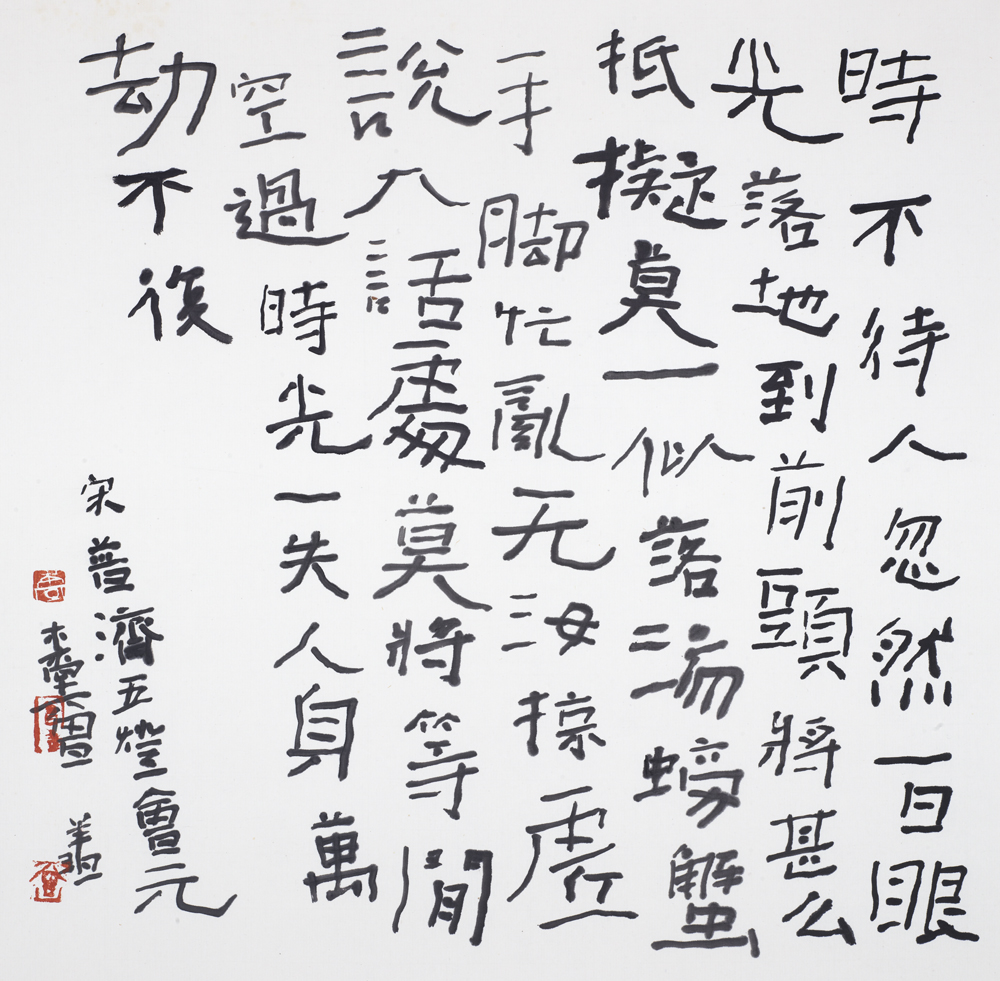 時不待人忽然一日眼
光落地到前頭將甚么
抵擬莫一似落湯螃蟹
手脚忙亂无汝掠虛
說大話處莫將等閒
空過時光一失人身萬
劫不復
宋普濟五燈會元